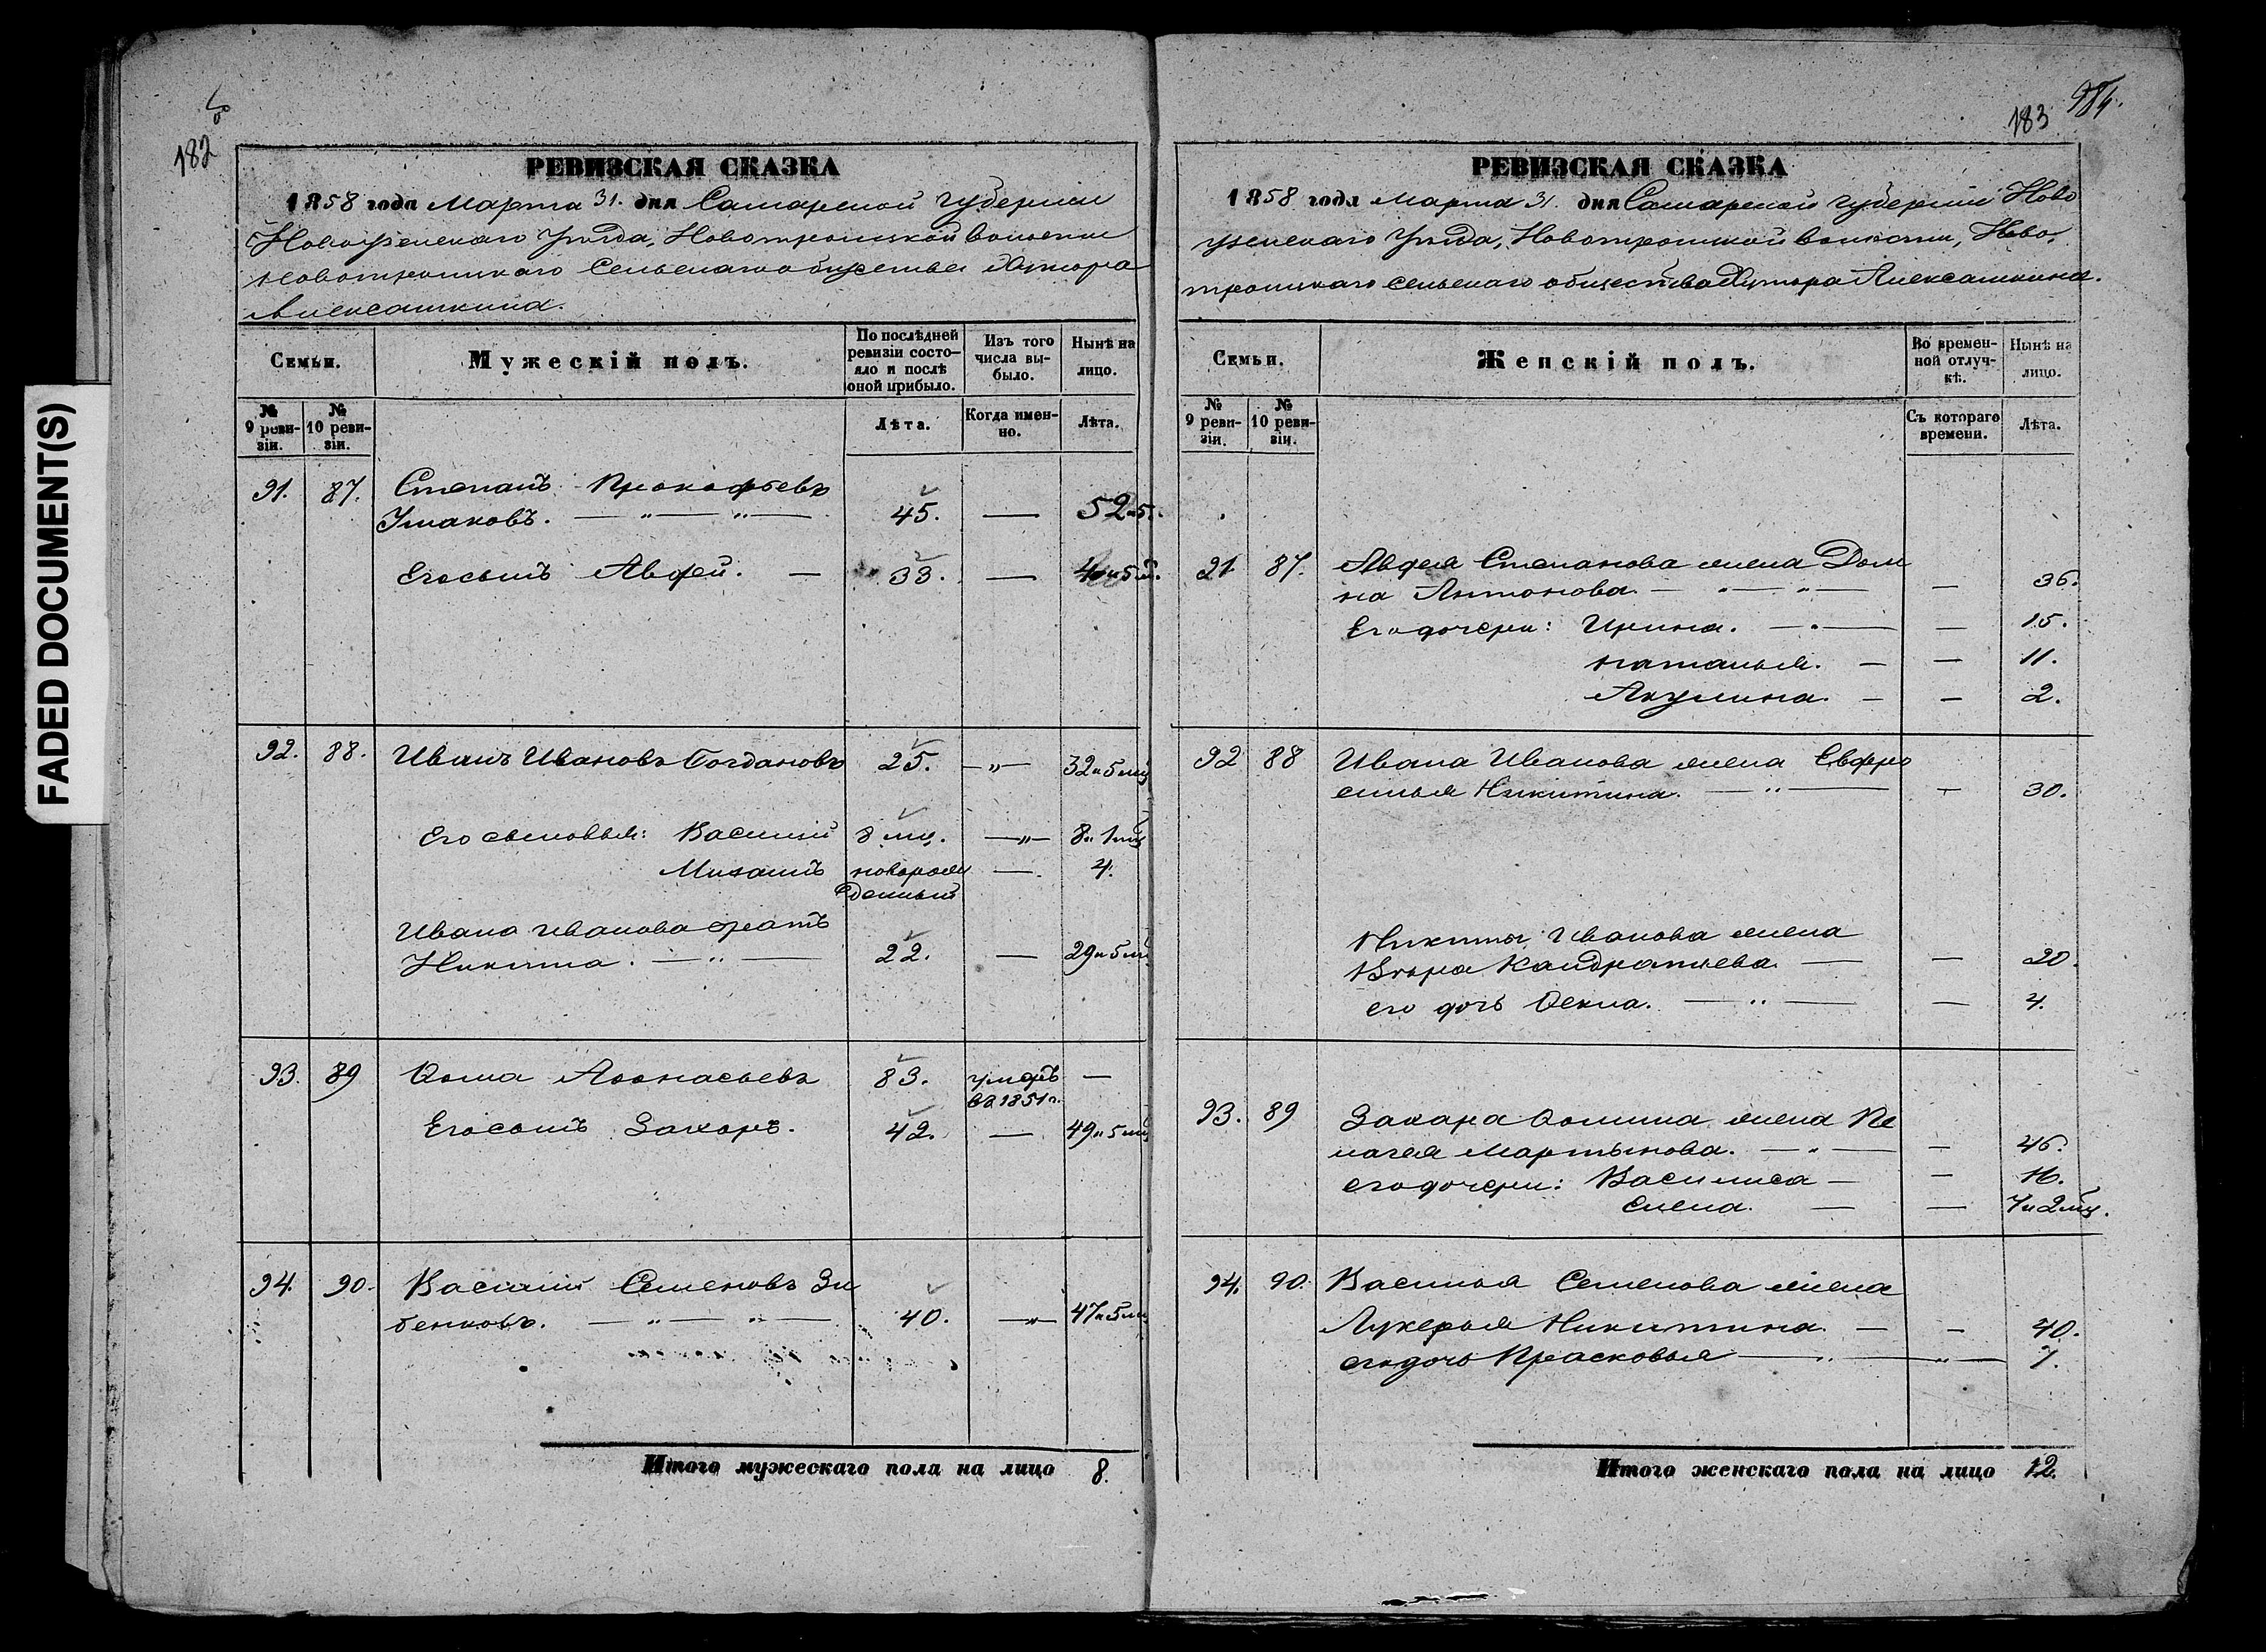 FADED DOCUMENT(S)
182 об
РЕВИЗСКАЯ СКАЗКА
1858 года Марта 31. дня Самарской губернiи
Новоузенскаго Уѣзда, Новотроицкой волости
Новотроицкаго Сельскаго общества Хутора
Алексашкина.
Семьи.
Мужескiй полъ.
По послѣдней ревизiи состояло и послѣ оной прибыло.
Изъ того числа выбыло.
Нынѣ на лицо.
№ 9 ревизiи.
№ 10 ревизiи.
Лѣта.
Когда именно.
Лѣта.
91. 87. Степанъ Прокофьевъ
Ушаковъ. — „ — „ — 45. — 52 „ 5.
Его сынъ Авдей. — 33. — 40 „ 5 м.
92. 88. Иванъ Ивановъ Богдановъ 25. — „ — 32 „ 5 мц
Его сыновья: Василiй 8 мц. — „ — 8 „ 1 мц
Михаилъ новорож — 4.
денный
Ивана Иванова братъ
Никита. — „ — 22. — 29 „ 5 м.
93. 89 Ѳома Аѳонасьевъ 83. умеръ —
въ 1851 г.
Его сынъ Захаръ. 42. — 49 „ 5 мц
94. 90. Василiй Семеновъ Зи
бенковъ. — „ — „ — 40. — „ — 47 „ 5 мц
Итого мужескаго пола на лицо 8.
183
РЕВИЗСКАЯ СКАЗКА
1858 года Марта 31. дня Самарской губернiи Ново
узенскаго Уѣзда, Новотроицкой волости, Ново
троицкаго сельскаго общества Хутора Алексашкина.
Семьи.
Женскiй полъ.
Во временной отлучкѣ.
Нынѣ на лицо.
№ 9 ревизiи.
№ 10 ревизiи.
Съ котораго времени.
Лѣта.
91 87. Авдея Степанова жена Дом
на Антонова. — „ — „ — — 36.
Его дочери: Ирина. — „ — — 15.
Наталья. — — 11.
Акулина. — — 2.
92 88 Ивана Иванова жена Евфро
синья Никитина. — „ — — 30.
Никиты Иванова жена
Вѣра Кандратьева. — — 20.
его дочь Ѳекла. — „ — — 4.
93. 89 Захара Ѳомина жена Пе
лагея Мартынова. — „ — — 46.
его дочери: Василиса — — 16.
Елена. — — 7 и 2 мц.
94. 90. Василья Семенова жена
Лукерья Никитина. — — 40.
его дочь Прасковья — „ — „ — 7.
Итого женскаго пола на лицо 12.